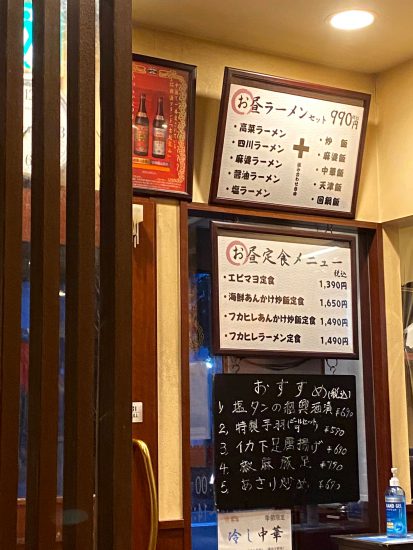 お昼ラーメンセット 990円
・高菜ラーメン
・四川ラーメン
・麻婆ラーメン
・醤油ラーメン
・塩ラーメン
+
組み合わせ自由
・炒飯
・麻婆飯
・中華飯
・天津飯
・回鍋飯
お昼定食メニュー
税込
・エビマヨ定食 1,390円
・海鮮あんかけ炒飯定食 1,650円
・フカヒレあんかけ炒飯定食 1,490円
・フカヒレラーメン定食 1,490円
おすすめ(税込)
1、塩タンの紹興酒漬 ¥690
2、特製手羽 ¥590
3、イカ下足唐揚げ ¥690
4、椒麻豚足 ¥790
5、あさり炒め ¥690
季節限定
冷し中華
HAND GEL